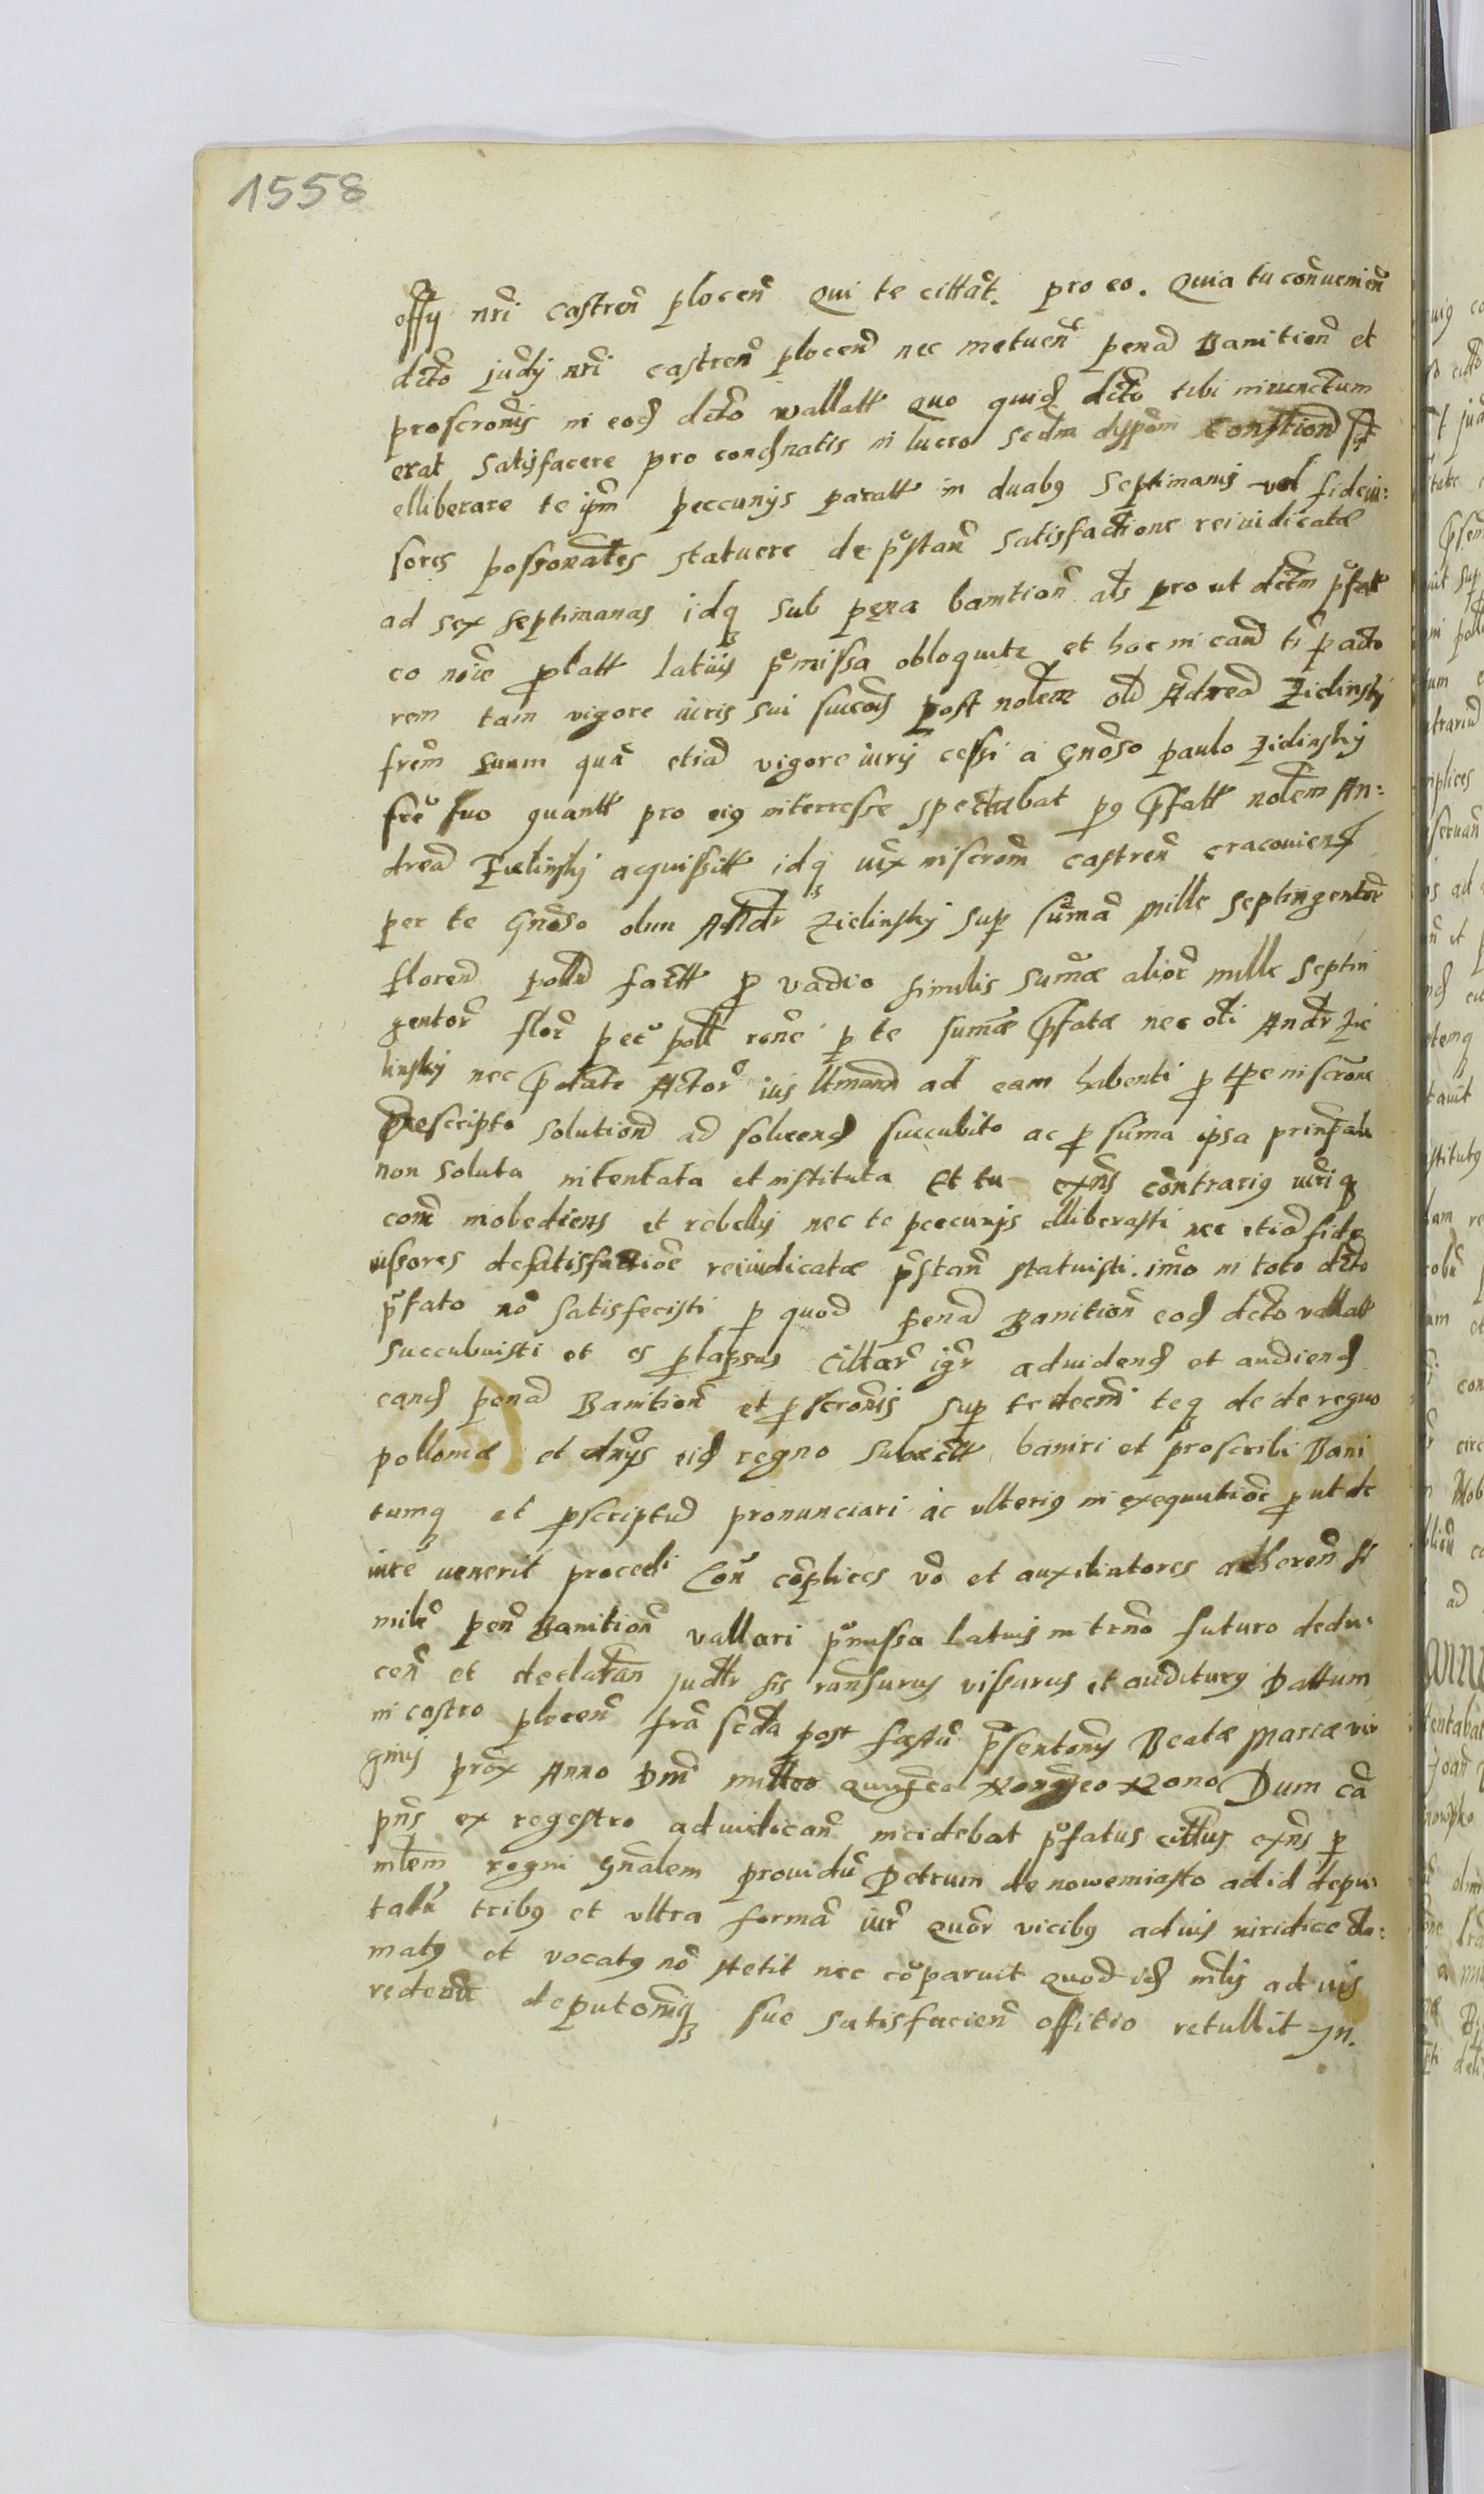 1558
offy nri castren plocen Qui te cittat. pro eo. Quia tu convenien
dcto judy nri castren plocen nec metuen pena Banition et
proscronis in eod dcto vallatt quo quid dcto tibi iniunctum
erat satisfacere pro condnatis in lucro scdm dyspom Constiond
elliberare te ipm peccunijs paratt in duabq septimanis vel fideiu:
sores possonates statuere de pstan satisfactione reiudicatæ
ad sex septimanas idq sub pena banition als pro ut dctm pfatt
eo noie platt latius pmissa obloquite et hoc in eand ts p acto
rem tam vigore iuris sui succos post nolem oli Andrea Zielinski
frem suum qua etia vigore iurij cessi a Gnoso paulo Zielinskij
fre suo quantt pro eiq interresse spectabat pq pfatt nolem An:
drea Zielinskj acquissitt idq vix inscrom castren cracouien
per te Gnoso olim Andr Zielinskj sup suma mille septingentor
floren polld factt p vadio similis sumæ alior mille septin
gentor flor pec poll rone p te sumæ pfatæ nec oli Andr Zie
linskj nec potate Actor ius ltmann ad eam habenti p tpe inscrone
prescripto solutiond ad solvend succubito ac p suma ipsa prinpali
non soluta intentata et instituta Et tu exns contrariq iuriq
com inobediens et rebellis nec te peccunijs elliberasti nec etia fide
iussores de satisfactioe reiudicatæ pstan statuisti. imo in toto dcto
pfato no satisfecisti p quod pena Banition eod dcto vallatt
succubuisti et es plapsus Cittar igr ad videnđ et audienđ
eand pena Banition et pscronis sup te decni teq de de regno
polloniæ et dnys eid regno subiectt baniri et proscribi Bani
tumq et pscriptu pronunciari ac ulteriq in exequutioe p ut de
iure venerit procedi Con coplices vo et auxiliatores adheren si
mili pen Banition vallari pmissa latius in trno futuro dedu:
cen et declaran judtr sis ransurus vissurus et auditurq Dattum
in castro plocen fra scda post festu psentonis Beatæ Mariæ vir
ginis prox Anno Dni milleo quingeo Nongeo Nono Dum ca
pns ex regestro adiudican incidebat pfatus cittus exns p
mlem regni Gnalem prouidu Petrum de nowemiasto ad id depu:
tatu tribq et ultra forma iur quor vicibq ad ius iuridice cla:
matq et vocatq no stetit nec coparuit quod id mlis ad ius
redeun deputoniq sue satisfacien offitio retullit In.